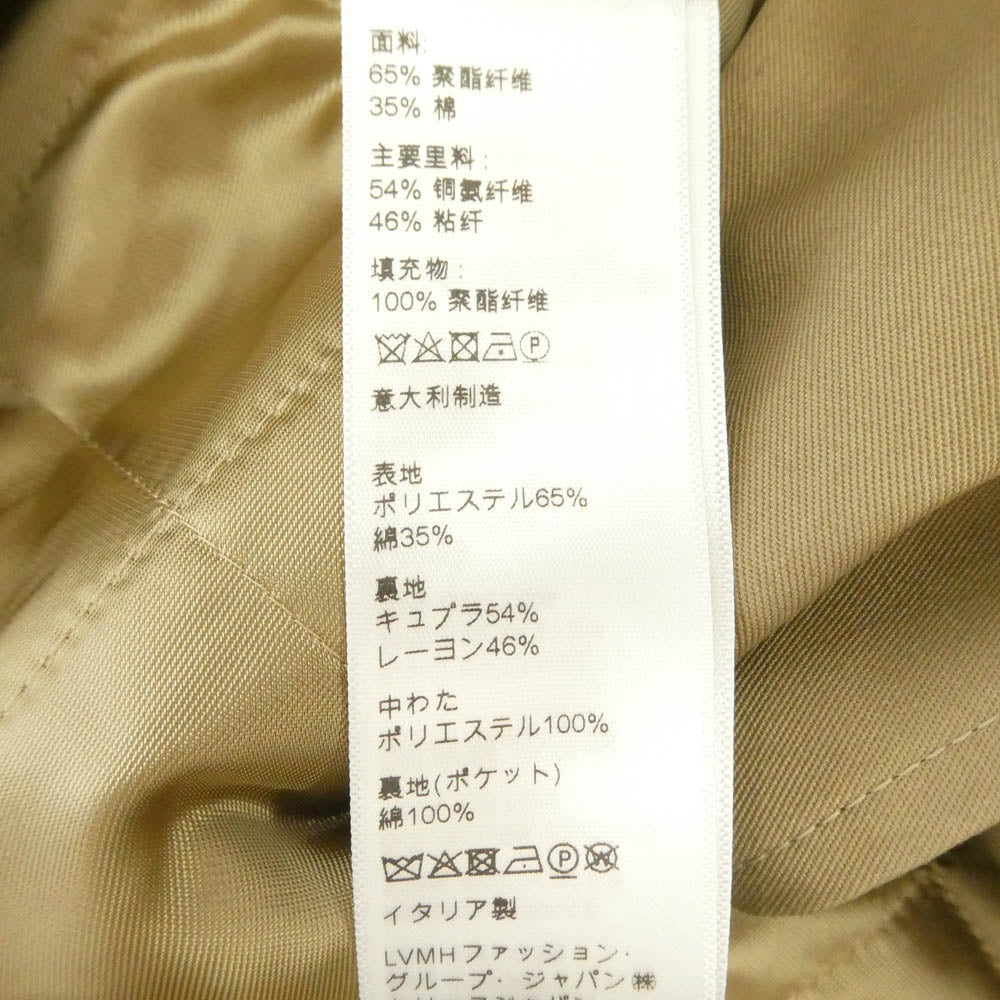 面料:
65% 聚酯纤维
35% 棉
主要里料:
54% 铜氨纤维
46% 粘纤
填充物:
100% 聚酯纤维
P
意大利制造
表地
ポリエステル65%
綿35%
裏地
キュプラ54%
レーヨン46%
中わた
ポリエステル100%
裏地(ポケット)
綿100%
P W
イタリア製
LVMHファッション・
グループ・ジャパン㈱